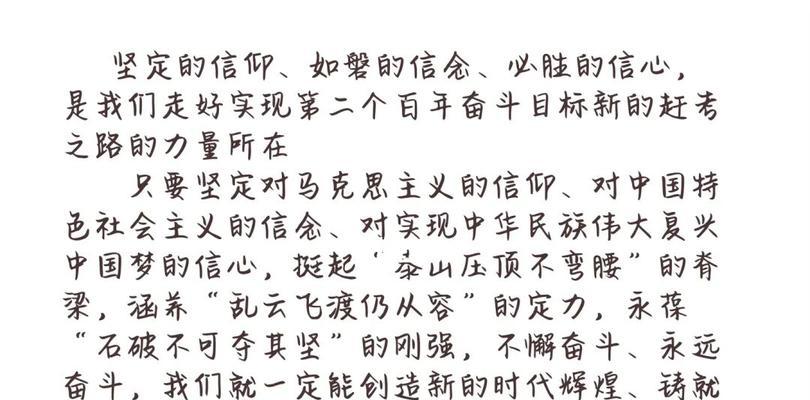 坚定的信仰、如磐的信念、必胜的信心，
是我们走好实现第二个百年奋斗目标新的赶考
之路的力量所在
只要坚定对马克思主义的信仰、对中国特
色社会主义的信念、对实现中华民族伟大复兴
中国梦的信心，挺起“泰山压顶不弯腰”的脊
梁，涵养“乱云飞渡仍从容”的定力，永葆
“石破不可夺其坚”的刚强，不懈奋斗、永远
奋斗，我们就一定能创造新的时代辉煌、铸就